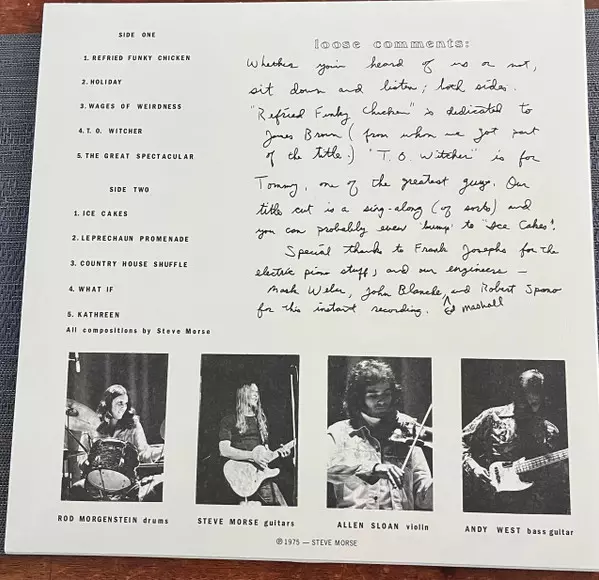 SIDE ONE
1. REFRIED FUNKY CHICKEN
2. HOLIDAY
3. WAGES OF WEIRDNESS
4. T. O. WITCHER
5. THE GREAT SPECTACULAR
SIDE TWO
1. ICE CAKES
2. LEPRECHAUN PROMENADE
3. COUNTRY HOUSE SHUFFLE
4. WHAT IF
5. KATHREEN
All compositions by Steve Morse
loose comments:
Whether you've heard of us or not,
sit down and listen; both sides.
"Refried Funky Chicken" is dedicated to
James Brown (from whom we got part
of the title.) "T. O. Witcher" is for
Tommy, one of the greatest guys. Our
title cut is a sing-along (of sorts) and
you can probably even bump to "Ice Cakes".
Special thanks to Frank Josephs for the
electric piano stuff, and our engineers —
Mark Weber, John Blanche, and Robert Spano
for this instant recording. Ed Mashall
ROD MORGENSTEIN drums
STEVE MORSE guitars
ALLEN SLOAN violin
ANDY WEST bass guitar
℗ 1975 — STEVE MORSE